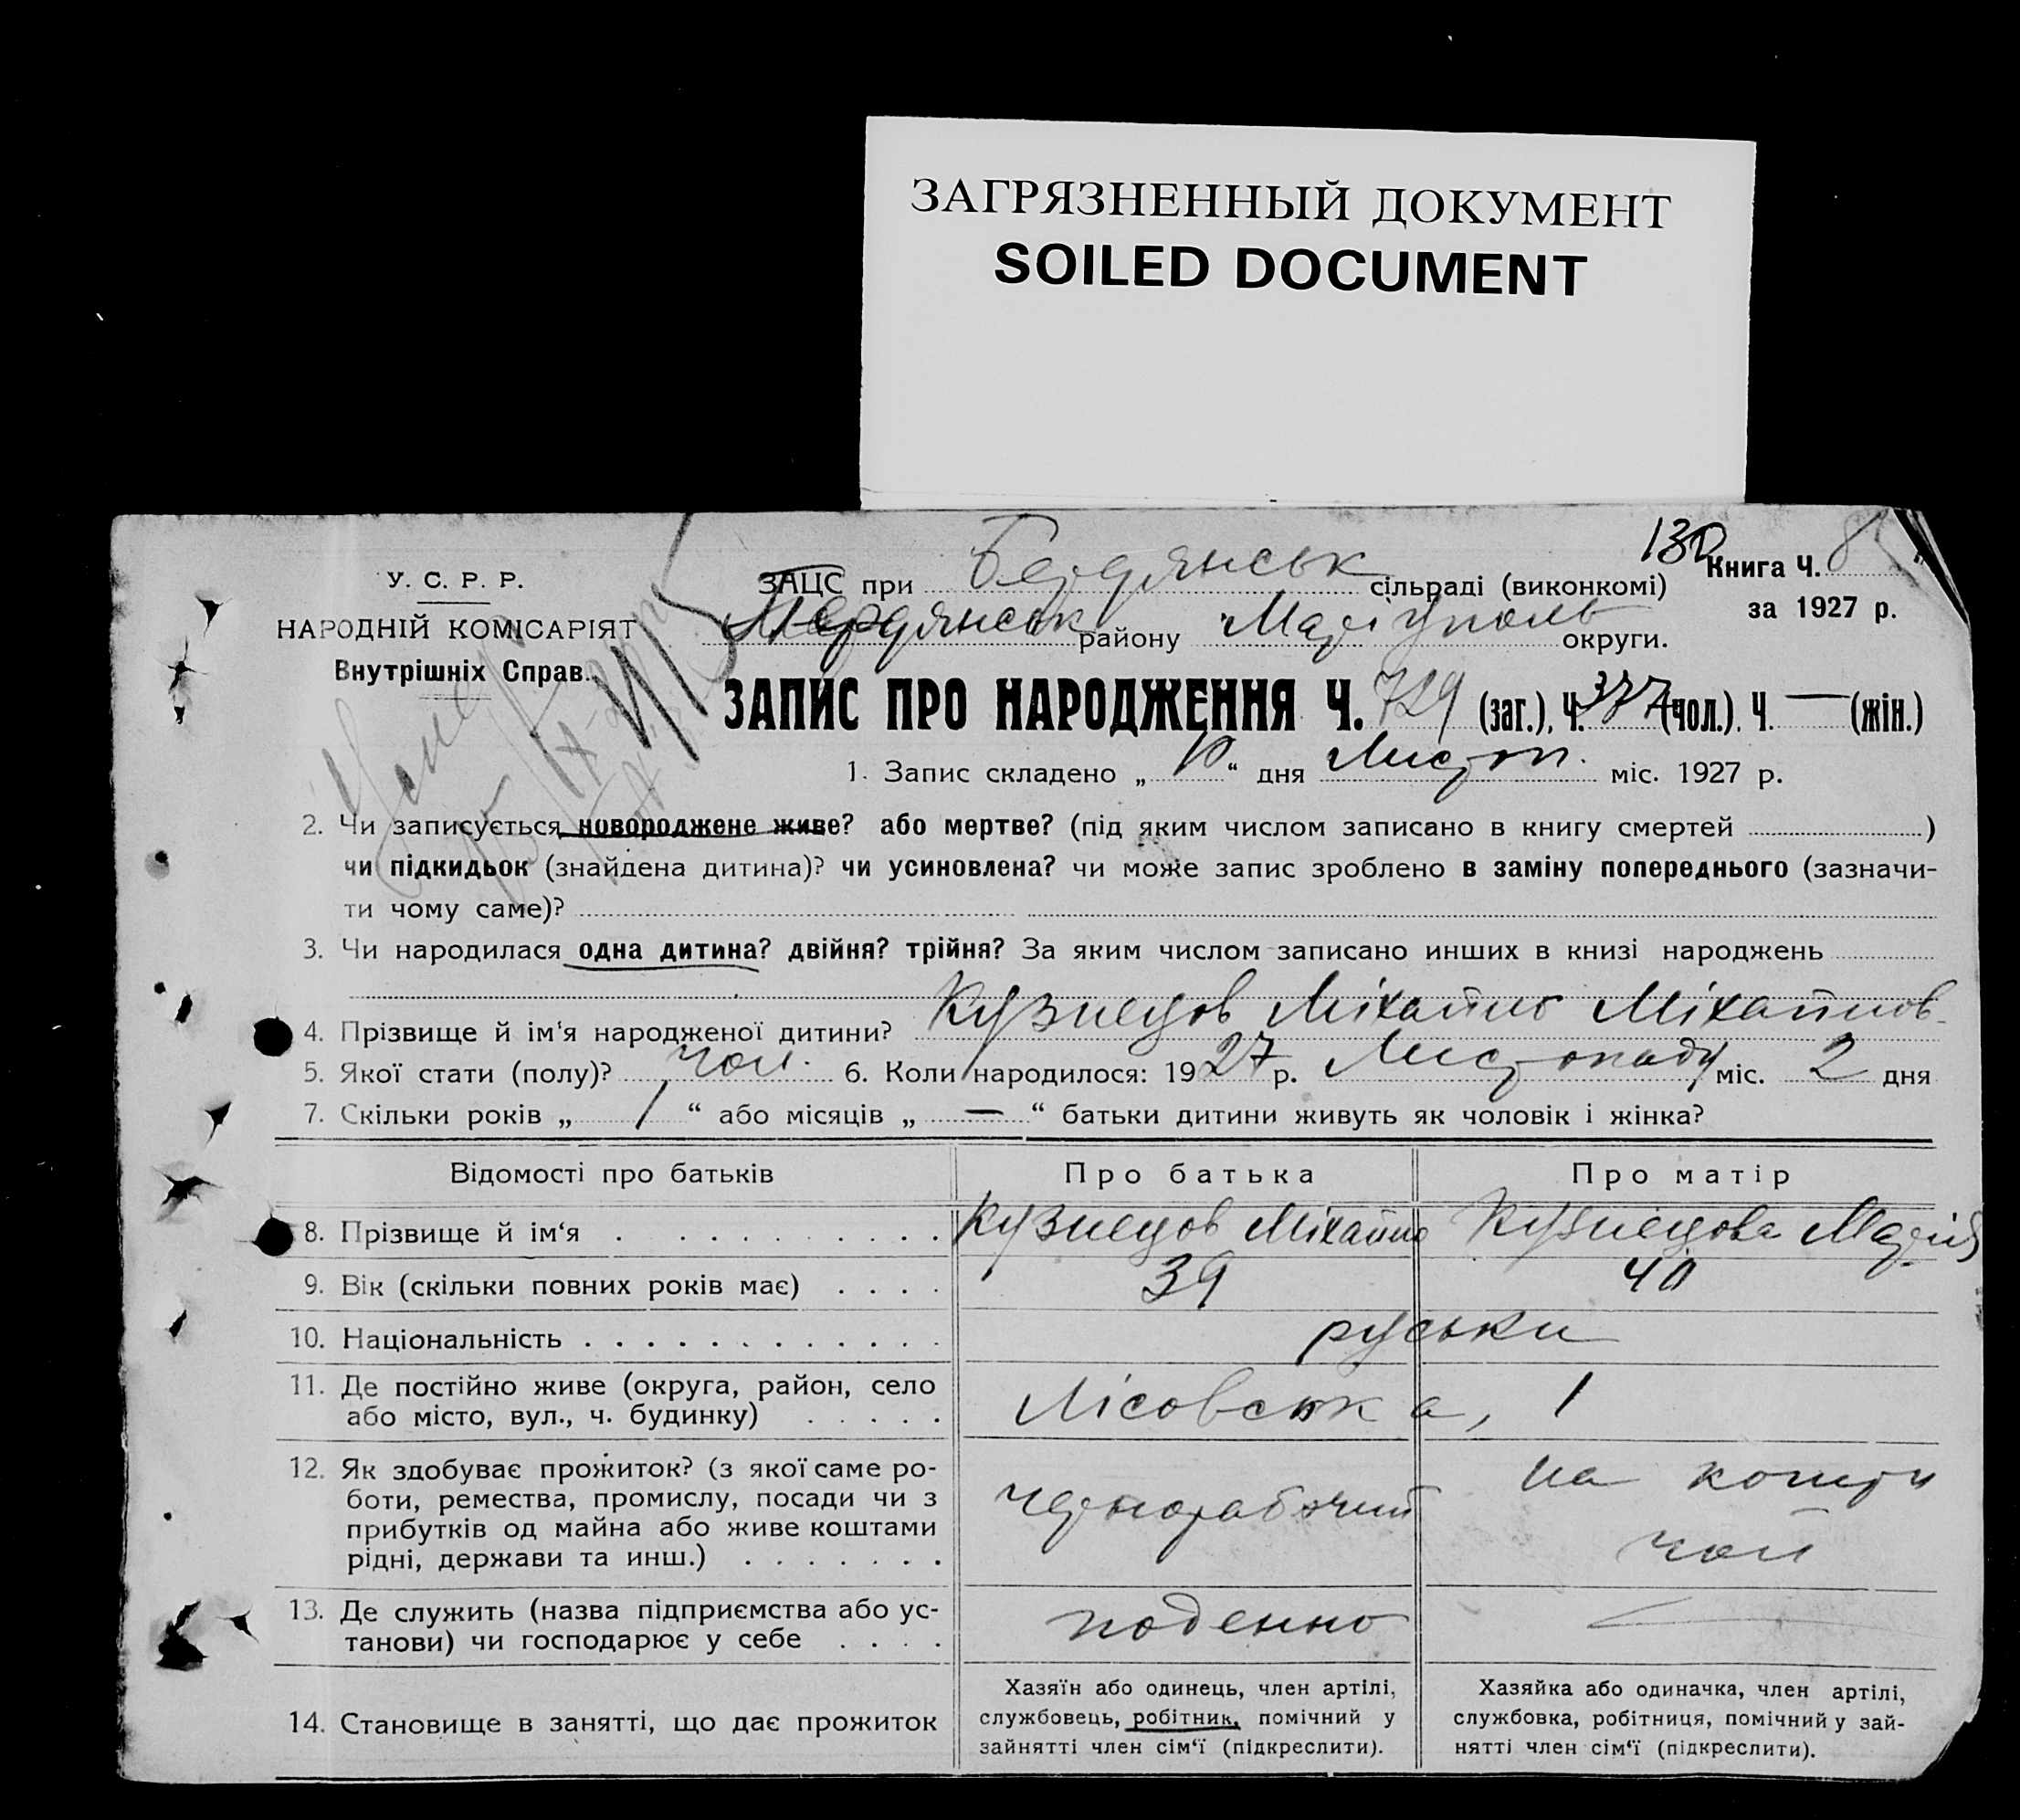 ЗАГРЯЗНЕННЫЙ ДОКУМЕНТ
SOILED DOCUMENT
130
У. С. Р. Р.
НАРОДНІЙ КОМІСАРІЯТ
Внутрішніх Справ.
ЗАЦС при Бердянськ сільраді (виконкомі)
Книга Ч. 8
за 1927 р.
Бердянськ району Маріуполь округи.
ЗАПИС ПРО НАРОДЖЕННЯ Ч. 729 (заг.), Ч. 377 (чол.), Ч. — (жін.)
1. Запис складено „ “ дня Листоп. міс. 1927 р.
2. Чи записується новороджене живе? або мертве? (під яким числом записано в книгу смертей )
чи підкидьок (знайдена дитина)? чи усиновлена? чи може запис зроблено в заміну попереднього (зазначи-
ти чому саме)?
3. Чи народилася одна дитина? двійня? трійня? За яким числом записано инших в книзі народжень
4. Прізвище й ім'я народженої дитини? Кузнецов Міхайло Міхайлов
5. Якої стати (полу)? чол. 6. Коли народилося: 1927 р. Листопаду міс. 2 дня
7. Скільки років „ 1 “ або місяців „ — “ батьки дитини живуть як чоловік і жінка?
Відомості про батьків Про батька Про матір
8. Прізвище й ім‘я Кузнецов Міхайло Кузнецова Марія
9. Вік (скільки повних років має) 39 40
10. Національність руськи
11. Де постійно живе (округа, район, село
або місто, вул., ч. будинку) Лісовська, 1
12. Як здобуває прожиток? (з якої саме ро-
боти, ремества, промислу, посади чи з
прибутків од майна або живе коштами
рідні, держави та инш.)
чернорабочий
на кошти
чол
13. Де служить (назва підприємства або ус-
танови) чи господарює у себе поденно —
14. Становище в занятті, що дає прожиток
Хазяїн або одинець, член артілі,
службовець, робітник, помічний у
зайнятті член сім‘ї (підкреслити).
Хазяйка або одиначка, член артілі,
службовка, робітниця, помічний у зай-
нятті член сім‘ї (підкреслити).